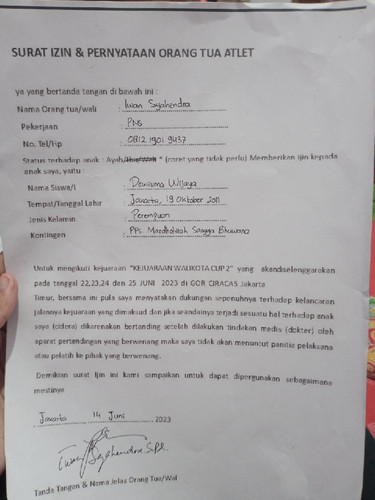 SURAT IZIN & PERNYATAAN ORANG TUA ATLET
ya yang bertanda tangan di bawah ini :
Nama Orang tua/wali : Iwan Syahendra
Pekerjaan : PNS
No. Tel/Hp : 0812 1901 9437
Status terhadap anak : Ayah/Ibu/Wali * (coret yang tidak perlu) Memberikan izin kepada
anak saya, yaitu :
Nama Siswa/i : Wijaya
Tempat/Tanggal Lahir : Jakarta, 19 Oktober 2011
Jenis Kelamin : Perempuan
Kontingen : PPS. Sangga Bhuwana
Untuk mengikuti kejuaraan "KEJUARAAN WALIKOTA CUP 2" yang akandselenggarakan
pada tanggal 22,23,24 dan 25 JUNI 2023 di GOR CIRACAS Jakarta
Timur, bersama ini pula saya menyatakan dukungan sepenuhnya terhadap kelancaran
jalannya kejuaraan yang dimaksud dan jika seandainya terjadi sesuatu hal terhadap anak
saya (cidera) dikarenakan bertanding setelah dilakukan tindakan medis (dokter) oleh
aparat pertandingan yang berwenang maka saya tidak akan menuntut panitia pelaksana
atau pelatih ke pihak yang berwenang.
Demikian surat Ijin ini kami sampaikan untuk dapat dipergunakan sebagaimana
mestinya
Jakarta 14 Juni 2023
Iwan Syahendra S.Pd.
Tanda Tangan & Nama Jelas Orang Tua/Wal